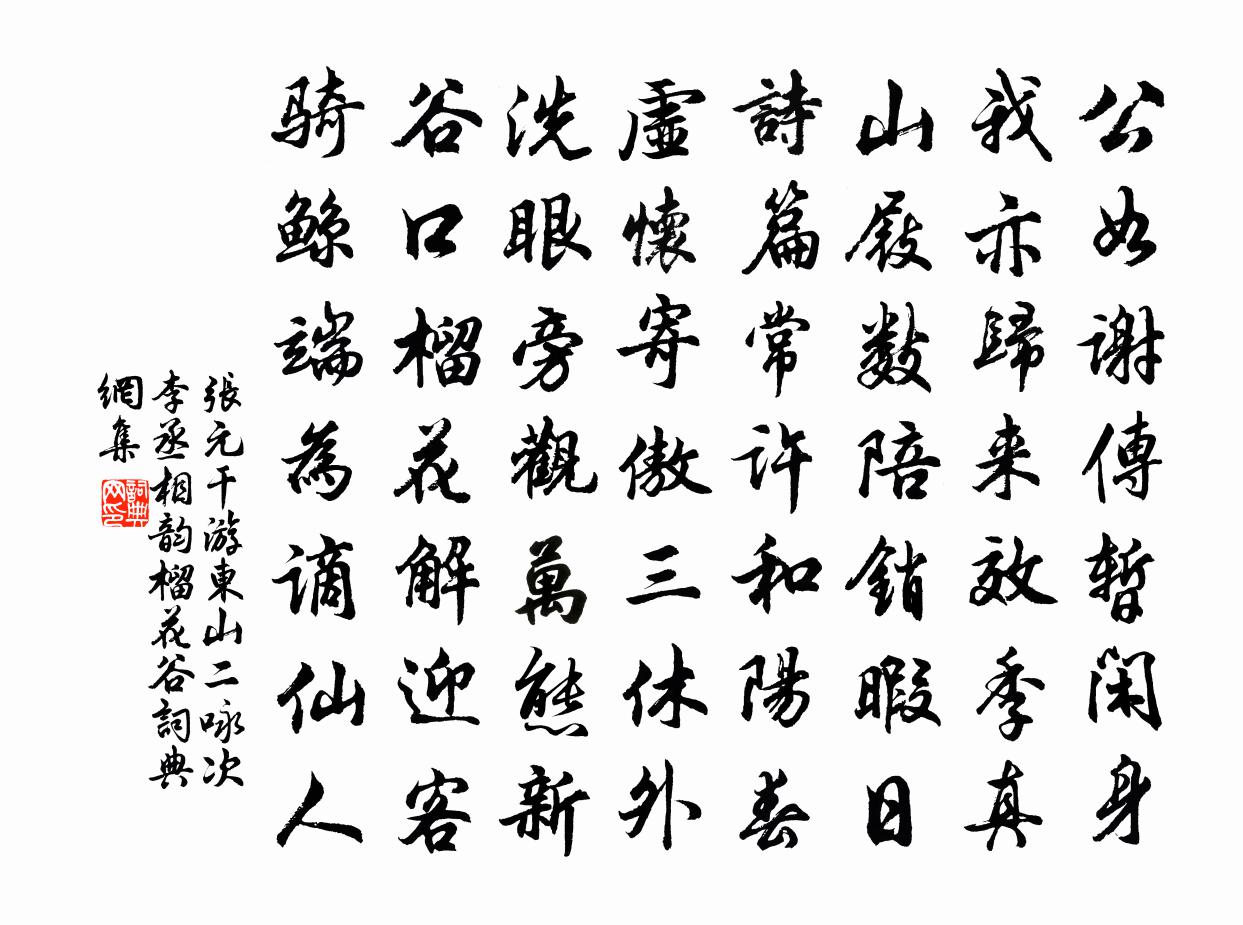 公如謝傅暫閑身
我亦歸来效季真
山屐數陪銷暇日
詩篇常許和陽春
虛懷寄傲三休外
洗眼旁觀萬態新
谷口榴花解迎客
骑鲸端為謫仙人
張元干游東山二咏次
李丞相韵榴花谷詞典
網集
詞典
网印